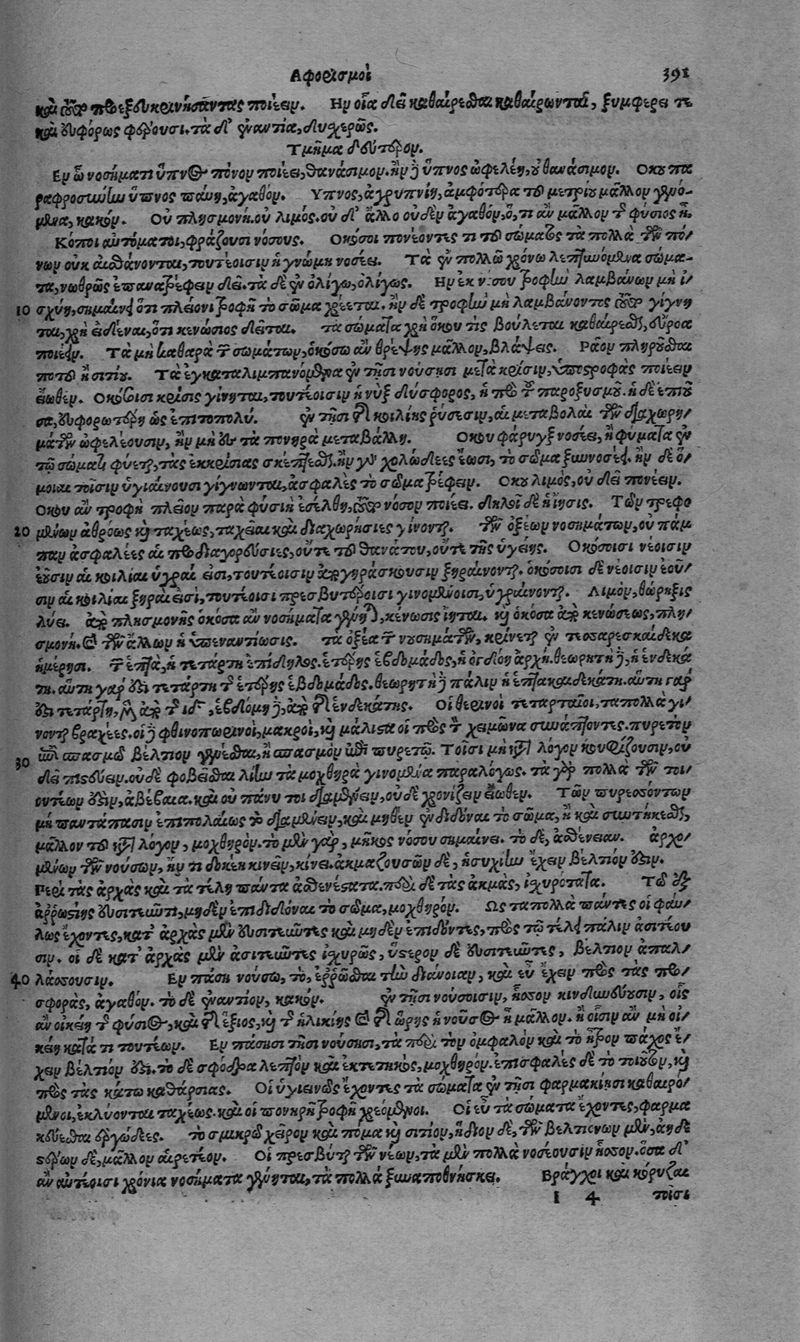 Αφορισμοί 391
καὶ τοῦτο προεξευκρινήσαντας ποιέειν. Ην οἷα δεῖ καθαίρεσθαι καθαίρωνται, ξυμφέρει τε
καὶ εὐφόρως φέρουσι. τὰ δ' ἐναντία, δυσχερῶς.
Τμῆμα δεύτερον.
Εν ᾧ νοσήματι ὕπνος πόνον ποιέει, θανάσιμον. ἢν δὲ ὕπνος ὠφελέῃ, οὐ θανάσιμον. Οκου πα
ραφροσύνην ὕπνος παύῃ, ἀγαθόν. Υπνος, ἀγρυπνίη, ἀμφότερα τοῦ μετρίου μᾶλλον γενό-
μενα, κακόν. Οὐ πλησμονὴ. οὐ λιμὸς. οὐ δ' ἄλλο οὐδὲν ἀγαθὸν, ὅ, τι ἂν μᾶλλον τῆς φύσιος ᾖ.
Κόποι αὐτόματοι, φράζουσι νόσους. Οκόσοι πονέοντές τι τοῦ σώματος τὰ πολλὰ τῶν πό/
νων οὐκ αἰσθάνονται, τουτέοισιν ἡ γνώμη νοσέει. Τὰ ἐν πολλῷ χρόνῳ λεπτυνόμενα σώμα-
τα, νωθρῶς ἐπανατρέφειν δεῖ. τὰ δὲ ἐν ὀλίγῳ, ὀλίγως. Ην ἐκ νόσου τροφὴν λαμβάνων μὴ ἰ/
10 σχύῃ, σημαίνει ὅτι πλέονι τροφῇ τὸ σῶμα χρέεται. ἢν δὲ τροφὴν μὴ λαμβάνοντος τοῦτο γίγνη
ται, χρὴ εἰδέναι, ὅτι κενώσιος δέεται. τὰ σώματα χρὴ ὅκου τις βούλεται καθαίρεσθαι, εὔροα
ποιέειν. Τὰ μὴ καθαρὰ τῶν σωμάτων, ὁκόσῳ ἂν θρέψῃς μᾶλλον, βλάψεις. Ρᾶον πληροῦσθαι
ποτοῦ ἢ σιτίου. Τὰ ἐγκαταλιμπανόμενα ἐν τῇσι νούσῃσι μετὰ κρίσιν, ὑποτροφὰς ποιέειν
ἔωθεν. Οκόσοισι κρίσις γίνηται, τουτέοισιν ἡ νὺξ δύσφορος, ἡ πρὸ τοῦ παροξυσμοῦ. ἡ δὲ ἐπιοῦ
σα, εὐφορωτέρη ὡς ἐπιτοπολύ. ἐν τῇσι τῆς κοιλίης ῥύσεσιν, αἱ μεταβολαὶ τῶν διαχωρη/
μάτων ὠφελέουσιν, ἢν μὴ ἐς τὰ πονηρὰ μεταβάλλῃ. Οκου φάρυγξ νοσέει, ἢ φύματα ἐν
τῷ σώματι φύεται, τὰς ἐκκρίσιας σκέπτεσθαι. ἢν γὰρ χολώδεες ἔωσι, τὸ σῶμα ξυννοσέει. ἢν δὲ ὅ/
μοιαι τοῖσιν ὑγιαίνουσι γίγνωνται, ἀσφαλὲς τὸ σῶμα τρέφειν. Οκου λιμὸς, οὐ δεῖ πονέειν.
Οκου ἂν τροφὴ πλέον παρὰ φύσιν ἐσέλθῃ, τοῦτο νόσον ποιέει. δηλοῖ δὲ ἡ ἴησις. Τῶν τρεφο
20 μένων ἀθρόως καὶ ταχέως, ταχεῖαι καὶ διαχωρήσιες γίνονται. Τῶν ὀξέων νοσημάτων, οὐ πάμ
παν ἀσφαλέες αἱ προδιαγορεύσιες, οὔτε τοῦ θανάτου, οὔτε τῆς ὑγείης. Οκόσοισι νέοισιν
ἐοῦσιν αἱ κοιλίαι ὑγραί εἰσι, τουτέοισιν ἀπογηράσκουσιν ξηραίνονται. ὁκόσοισι δὲ νέοισιν ἐοῦ/
σιν αἱ κοιλίαι ξηραὶ εἰσὶ, τουτέοισι πρεσβυτέροισι γινομένοισι, ὑγραίνονται. Λιμὸν, θώρηξις
λύει. ἀπὸ πλησμονῆς ὁκόσα ἂν νοσήματα γένηται, κένωσις ἰῆται. καὶ ὁκόσα ἀπὸ κενώσεως, πλη/
σμονή. καὶ τῶν ἄλλων ἡ ὑπεναντίωσις. τὰ ὀξέα τῶν νουσημάτων, κρίνεται ἐν τεσσαρεσκαίδεκα
ἡμέρῃσι. Τῶν ἑπτὰ, ἡ τετάρτη ἐπίδηλος. ἑτέρης ἑβδομάδος, ἡ ὀγδόη ἀρχή. θεωρητὴ δὲ, ἡ ἑνδεκά
τη. αὕτη γάρ ἐστι τετάρτη τῆς ἑτέρης ἑβδομάδος. θεωρητὴ δὲ πάλιν ἡ ἑπτακαιδεκάτη. αὕτη γάρ
ἐστι τετάρτη, μὲν ἀπὸ τῆς ιδ', ἑβδόμη δὲ, ἀπὸ τῆς ἑνδεκάτης. Οἱ θερινοὶ τεταρταῖοι, τὰ πολλὰ γί
νονται βραχέες. οἱ δὲ φθινοπωρινοὶ, μακροί, καὶ μάλιστα οἱ πρὸς τὸν χειμῶνα συνάπτοντες. πυρετὸν
30 ἐπὶ σπασμῷ βέλτιον γενέσθαι, ἢ σπασμὸν ἐπὶ πυρετῷ. Τοῖσι μὴ κατὰ λόγον κουφίζουσιν, οὐ
δεῖ πιστεύειν. οὐδὲ φοβεῖσθαι λίην τὰ μοχθηρὰ γινομένα παραλόγως. τὰ γὰρ πολλὰ τῶν τοι/
ουτέων ἐστὶν, ἀβέβαια. καὶ οὐ πάνυ τοι διαμένειν, οὐδὲ χρονίζειν ἔωθεν. Τῶν πυρεσσόντων
μὴ παντάπασιν ἐπιπολαίως τὸ διαμένειν, καὶ μηθὲν ἐνδιδόναι τὸ σῶμα, ἢ καὶ συντήκεσθαι,
μᾶλλον τοῦ κατὰ λόγον, μοχθηρόν. τὸ μὲν γάρ, μῆκος νόσου σημαίνει. τὸ δὲ, ἀσθένειαν. ἀρχο/
μένων τῶν νούσων, ἤν τι δοκέῃ κινέειν, κίνει. ἀκμαζουσῶν δὲ, ἡσυχίην ἔχειν βέλτιον ἐστιν.
Περὶ τὰς ἀρχὰς καὶ τὰ τέλη πάντα ἀσθενέστατα. περὶ δὲ τὰς ἀκμάς, ἰσχυρότατα. Τῷ ἐξ
ἀῤῥωστίης εὐσιτεῦντι, μηδὲν ἐπιδιδόναι τὸ σῶμα, μοχθηρόν. Ως τὰ πολλὰ πάντες οἱ φαύ/
λως ἔχοντες, κατ' ἀρχὰς μὲν εὐσιτεῦντες καὶ μηδὲν ἐπιδόντες, πρὸς τῷ τέλει πάλιν ἀσιτέου
σιν. οἱ δὲ κατ' ἀρχὰς μὲν ἀσιτεῦντες ἰσχυρῶς, ὕστερον δὲ εὐσιτεῦντες, βέλτιον ἀπαλ/
40 λάσσουσιν. Εν πάσῃ νούσῳ, τὸ, ἐῤῥῶσθαι τὴν διάνοιαν, καὶ εὖ ἔχειν πρὸς τὰς προ/
σφορὰς, ἀγαθόν. τὸ δὲ ἐναντίον, κακόν. ἐν τῇσι νούσοισιν, ἧσσον κινδυνεύουσιν, οἷς
ἂν οἰκείη τῆς φύσιος, καὶ τῆς ἕξιος, καὶ τῆς ἡλικίης καὶ τῆς ὥρης ἡ νοῦσος ᾖ μᾶλλον. ἢ οἷσιν ἂν μὴ οἰ/
κείη κατά τι τουτέων. Εν πάσῃσι τῇσι νούσῃσι, τὰ περὶ τὸν ὀμφαλὸν καὶ τὸ ἦτρον πάχος ἔ/
χειν βέλτιον ἐστι, τὸ δὲ σφόδρα λεπτὸν καὶ ἐκτετηκὸς, μοχθηρόν. ἐπισφαλὲς δὲ τὸ τοιοῦτον, καὶ
πρὸς τὰς κάτω καθάρσιας. Οἱ ὑγιεινῶς ἔχοντες τὰ σώματα ἐν τῇσι φαρμακίῃσι καθαιρό/
μενοι, ἐκλύονται ταχέως. καὶ οἱ πονηρῇ τροφῇ χρεόμενοι. Οἱ εὖ τὰ σώματα ἔχοντες, φαρμα
κεύεσθαι ἐργώδεες. τὸ σμικρῷ χεῖρον καὶ πόμα καὶ σιτίον, ἥδιον δὲ, τῶν βελτιόνων μὲν, ἀηδε
στέρων δὲ, μᾶλλον αἱρετέον. Οἱ πρεσβῦται τῶν νέων, τὰ μὲν πολλὰ νοσέουσιν ἧσσον. ὅσα δ'
ἂν αὐτέοισι χρόνια νοσήματα γένηται, τὰ πολλὰ ξυναποθνήσκει. Βράγχοι καὶ κόρυζαι
I 4 τοῖσι